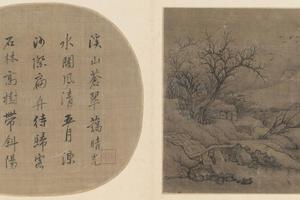 溪山蒼翠藹晴光
水閣風清五月涼
沙際扁舟待歸客
石林高樹帶斜陽